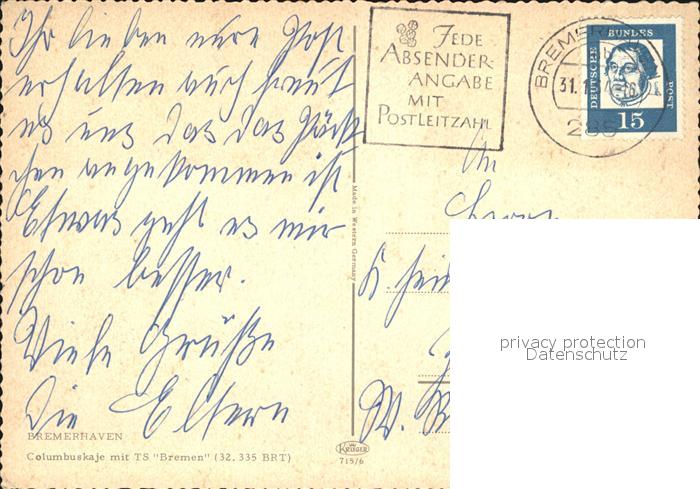 Ihr lieben eure Post
erhalten auch freut
es uns das das Päck
chen angekommen ist
Etwas geht es mir
schon besser.
Viele Grüße
Die Eltern
BREMERHAVEN
Columbuskaje mit TS "Bremen" (32.335 BRT)
Made in Western Germany
KRÜGER
715/6
JEDE
ABSENDER-
ANGABE
MIT
POSTLEITZAHL
BREMER
31.1
285
DEUTSCHE BUNDES POST
15
An
Herr
K. Hein
W.
privacy protection
Datenschutz